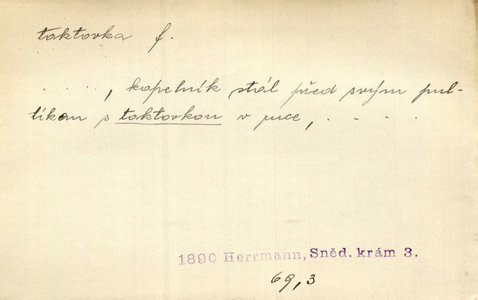 taktovka f.
. . . . , kapelník stál před svým pul-
tíkem s taktovkou v ruce, . . . .
1890 Herrmann, Sněd. krám 3.
69,3